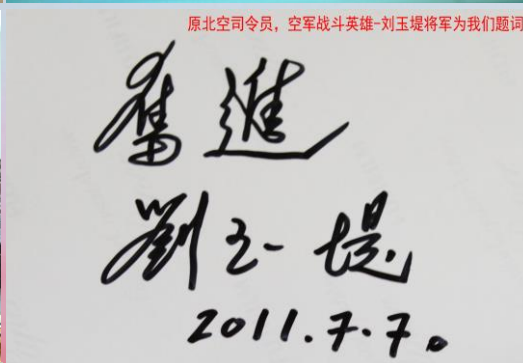 原北空司令员，空军战斗英雄-刘玉堤将军为我们题词
奮進
劉玉堤
2011.7.7。